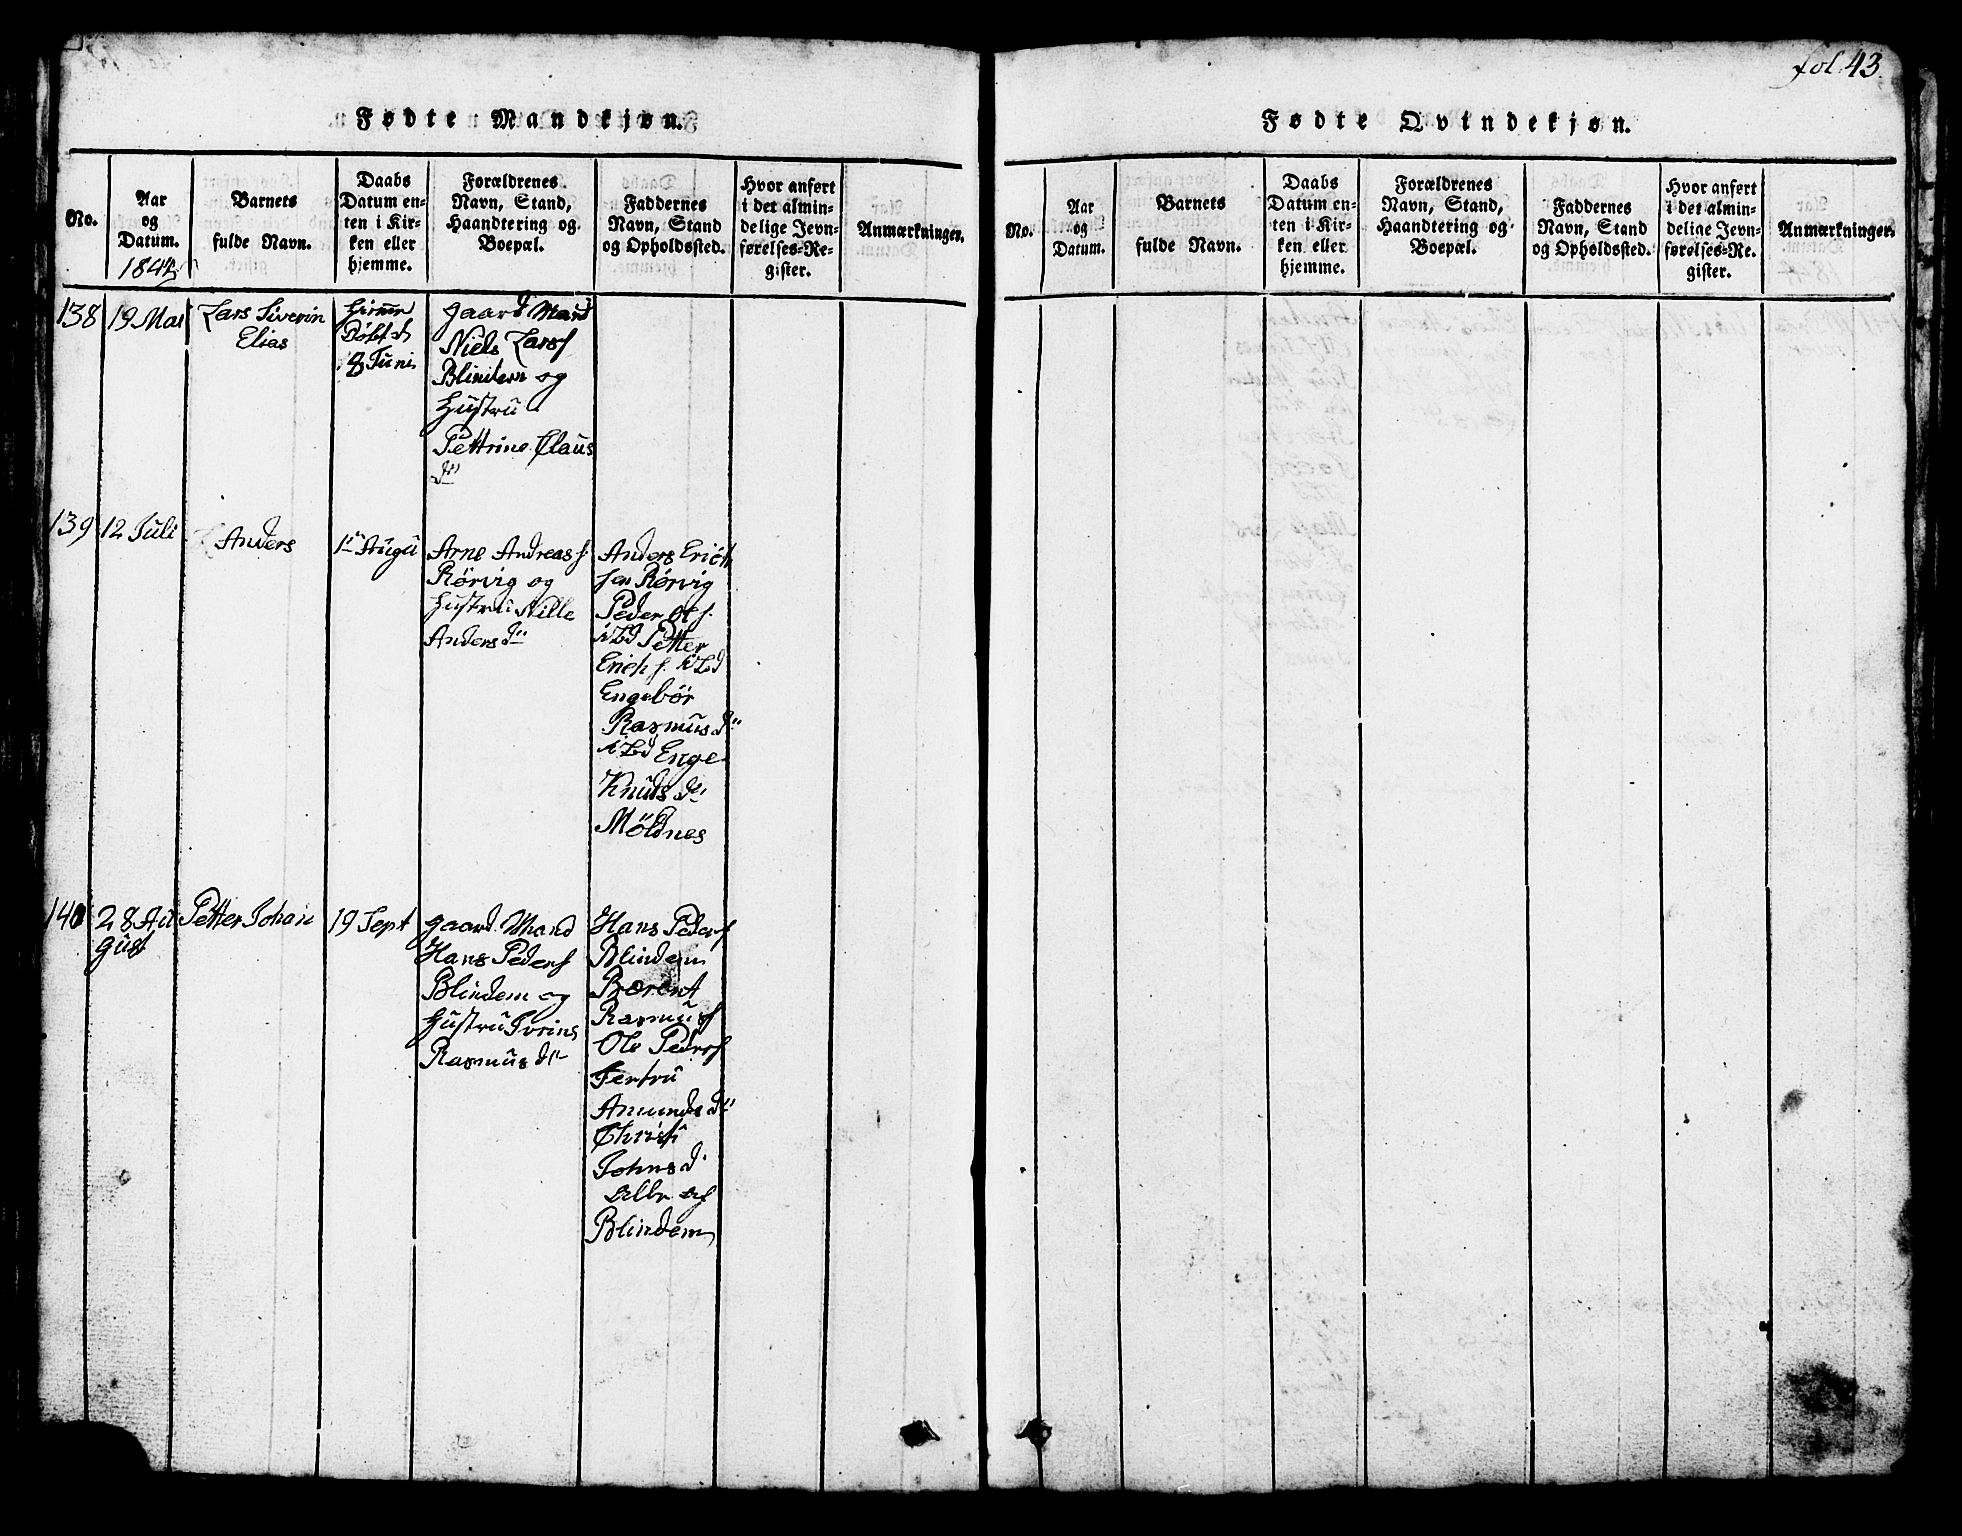 fol. 43.
Fødte Mandkjøn.
No.
Aar
og
Datum.
Barnets
fulde Navn.
Daabs
Datum en-
ten i Kir-
ken eller
hjemme.
Forældrenes
Navn, Stand,
Haandtering og
Boepæl.
Faddernes
Navn, Stand
og Opholdssted.
Hvor anført
i det almin-
delige Jevn-
førelses-Re-
gister.
Anmærkninger.
138
19 Mai
Lars Siverin
Elias
Døbt d
8 Juni
gaard Mand
Niels Larsf
Blindem og
Hustru
Pettrine Claus
dtr
139
12 Juli
Anders
1ste Augu
Arne Andreas f.
Rörvig og
Hustru Nille
Anders dtr
Anders Erich
sen Rørvig
Peder
Petter
Erich f.
Engebör
Rasmus dtr
Enge
Knuds dtr
Möldnes
140
28 Au
gust
Petter Johan
19 Sept
gaard Mand
Hans Pedersf
Blindem og
Hustru Ivrine
Rasmus dtr
Hans Pedersf
Blindem
Berent
Rasmusf
Ole Pedersf
Jertru
Amunds dtr
Christi
Johns d.
alle af
Blindem
Fødte Qvindekjøn.
No.
Aar
og
Datum.
Barnets
fulde Navn.
Daabs
Datum en-
ten i Kir-
ken eller
hjemme.
Forældrenes
Navn, Stand,
Haandtering og
Boepæl.
Faddernes
Navn, Stand
og Opholdssted.
Hvor anført
i det almin-
delige Jevn-
førelses-Re-
gister.
Anmærkninger.